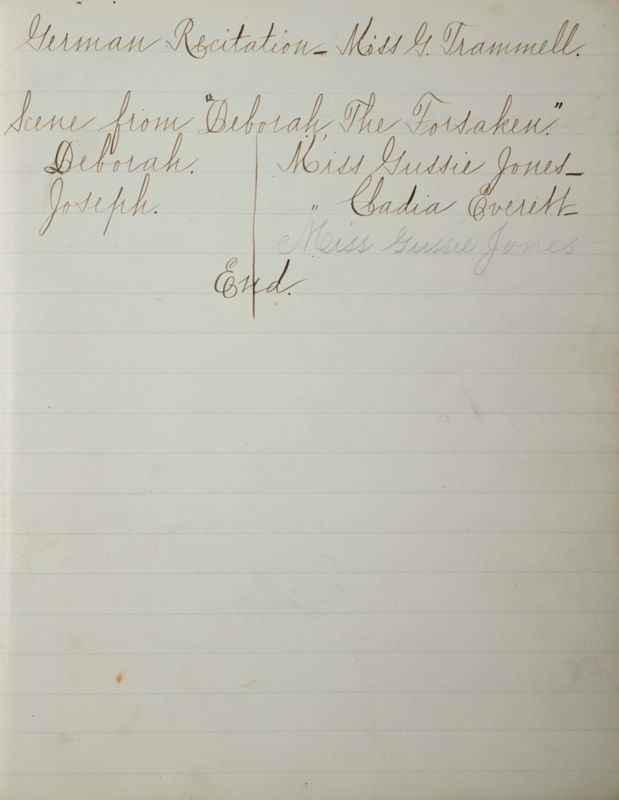 German Recitation - Miss G. Trammell.
Scene from "Deborah, The Forsaken."
Deborah. Miss Gussie Jones -
Joseph. " Cadia Everitt -
Miss Gussie Jones
End.